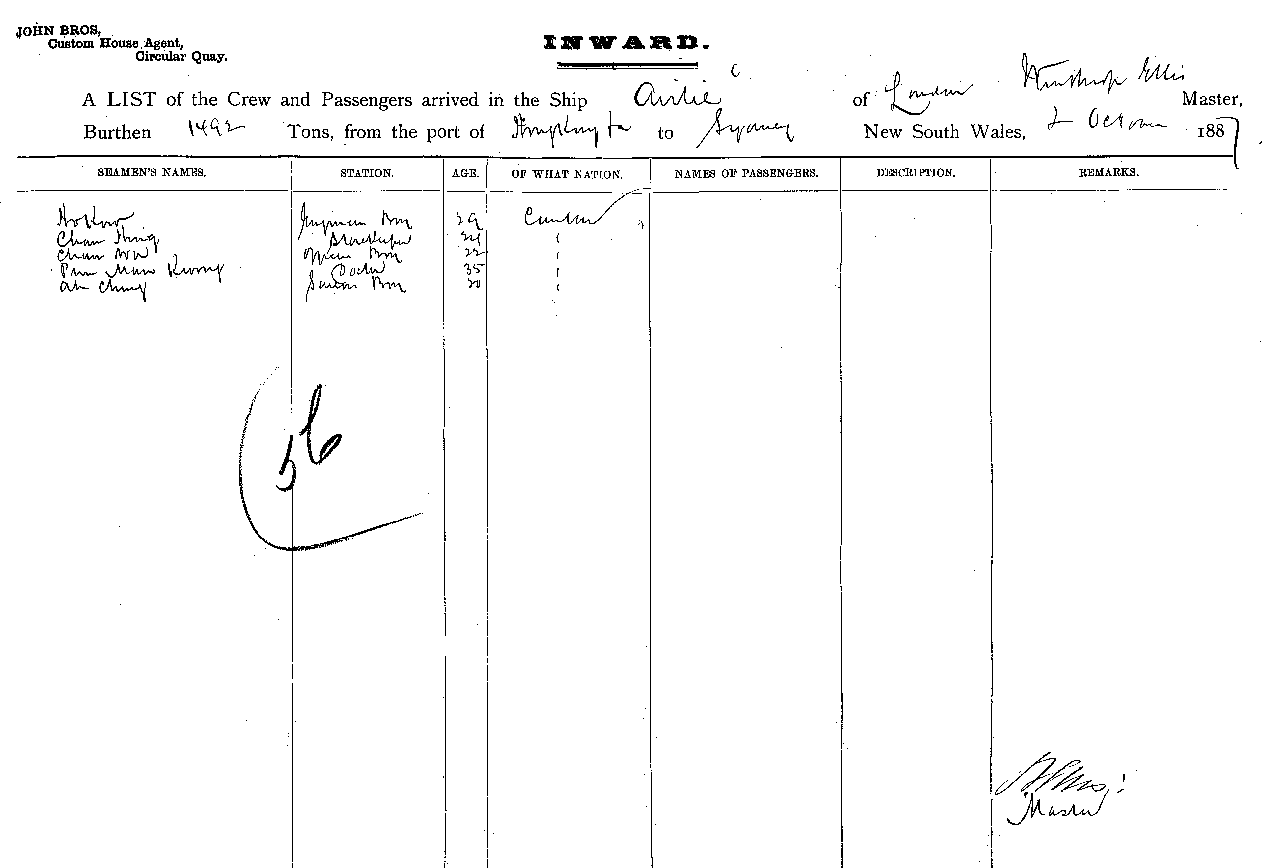 JOHN BROS,
Custom House Agent,
Circular Quay.
INWARD.
A LIST of the Crew and Passengers arrived in the Ship Airlie of London Winthrop Ellis Master,
Burthen 1492 Tons, from the port of to Sydney New South Wales, 2 October 1887
SEAMEN'S NAMES. STATION. AGE. OF WHAT NATION. NAMES OF PASSENGERS. DESCRIPTION. REMARKS.
29 Canton
Chan Storekeeper 24 "
Chan Boy 22 "
Man Kwong 35 "
Ah Ching Saloon Boy 20 "
56
Master